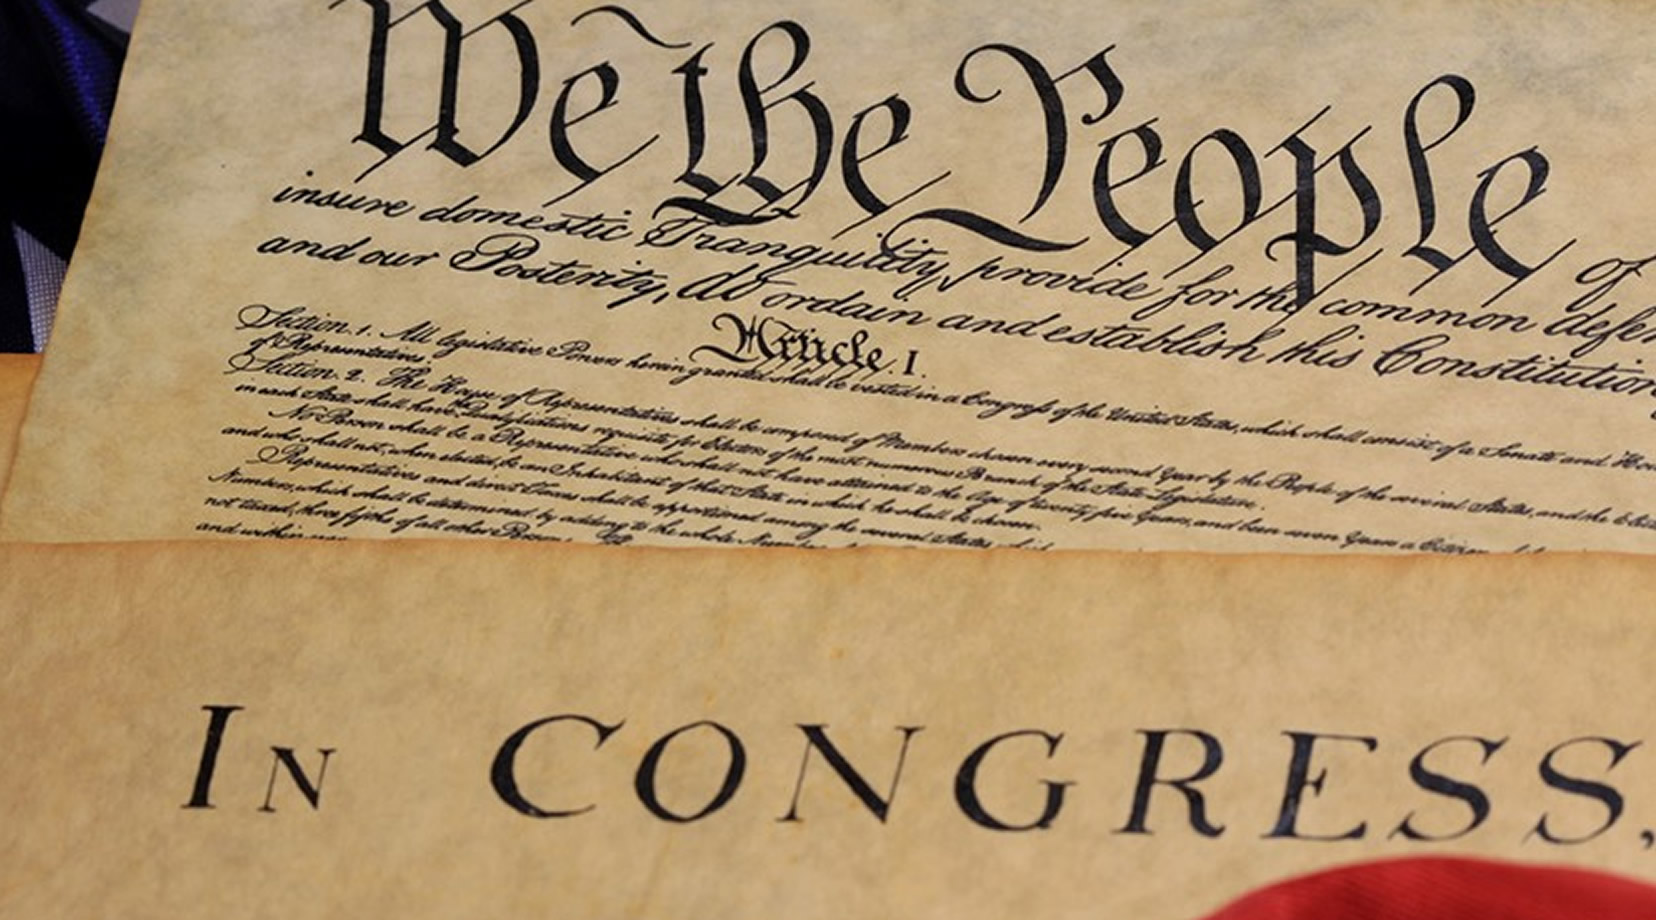 We the People of
insure domestic Tranquility, provide for the common defen
and our Posterity, do ordain and establish this Constitution
Article. I.
Section. 1. All legislative Powers herein granted shall be vested in a Congress of the United States, which shall consist of a Senate and Hou
of Representatives.
Section. 2. The House of Representatives shall be composed of Members chosen every second Year by the People of the several States, and the Elec
in each State shall have the Qualifications requisite for Electors of the most numerous Branch of the State Legislature.
No Person shall be a Representative who shall not have attained to the Age of twenty five Years, and been seven Years a Citizen
and who shall not, when elected, be an Inhabitant of that State in which he shall be chosen.
Representatives and direct Taxes shall be apportioned among the several States which
Numbers, which shall be determined by adding to the whole Number
not taxed, three fifths of all other Persons
and within
IN CONGRESS,